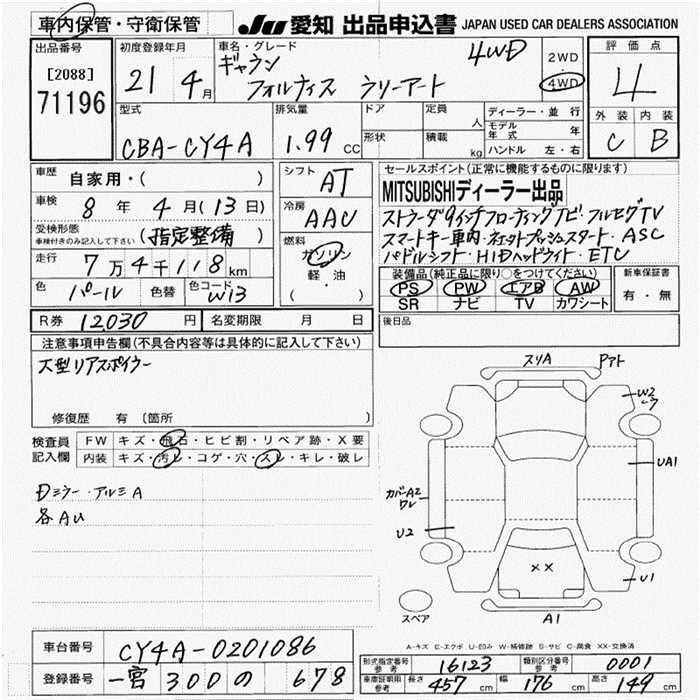 車内保管・守衛保管 JU 愛知 出品申込書 JAPAN USED CAR DEALERS ASSOCIATION
出品番号
[2088]
71196
初度登録年月
21 4月
車名・グレード
ギャラン
フォルティス ラリーアート
4WD
2WD
4WD
評価点
4
外装 内装
C B
型式
CBA-CY4A
排気量
1.99 CC
ドア
形状
定員 人
積載 kg
ディーラー・並行
モデル年式 年
ハンドル 左・右
車歴 自家用・( )
車検 8年 4月(13日)
受検形態
車検付きのみ記入して下さい (指定整備)
走行 7万4千118km
色 パール 色替 色コード W13
シフト AT
冷房 AAC
燃料
ガソリン
軽・油
( )
セールスポイント(正常に機能するものに限ります)
MITSUBISHIディーラー出品
スマートキー車内・
プッシュスタート・ASC
パドルシフト・HIDヘッドライト・ETC
装備品(純正品に限り○をつけてください)
PS PW エアB AW
SR ナビ TV カワシート
新車保証書
有・無
R券 12030円 名変期限 月 日
後日品
注意事項申告欄(不具合内容等は具体的に記入して下さい)
大型リアスポイラー
修復歴 有 〔箇所 〕
検査員記入欄
FW キズ・飛石・ヒビ割・リペア跡・X要
内装 キズ・汚レ・コゲ・穴・スレ・キレ・破レ
Dミラー・アルミA
各AU
スリA
W2
UA1
カバーA2
ワレ
U2
U1
××
A1
スペア
A-キズ E-エクボ U-凹み W-補修跡 S-サビ C-腐食 XX-交換済
車台番号 CY4A-0201086
登録番号 一宮 300 の 678
型式指定番号
参考 16123
類別区分番号
参考 0001
車庫証明用
参考 長さ 457cm 幅 176cm 高さ 149cm